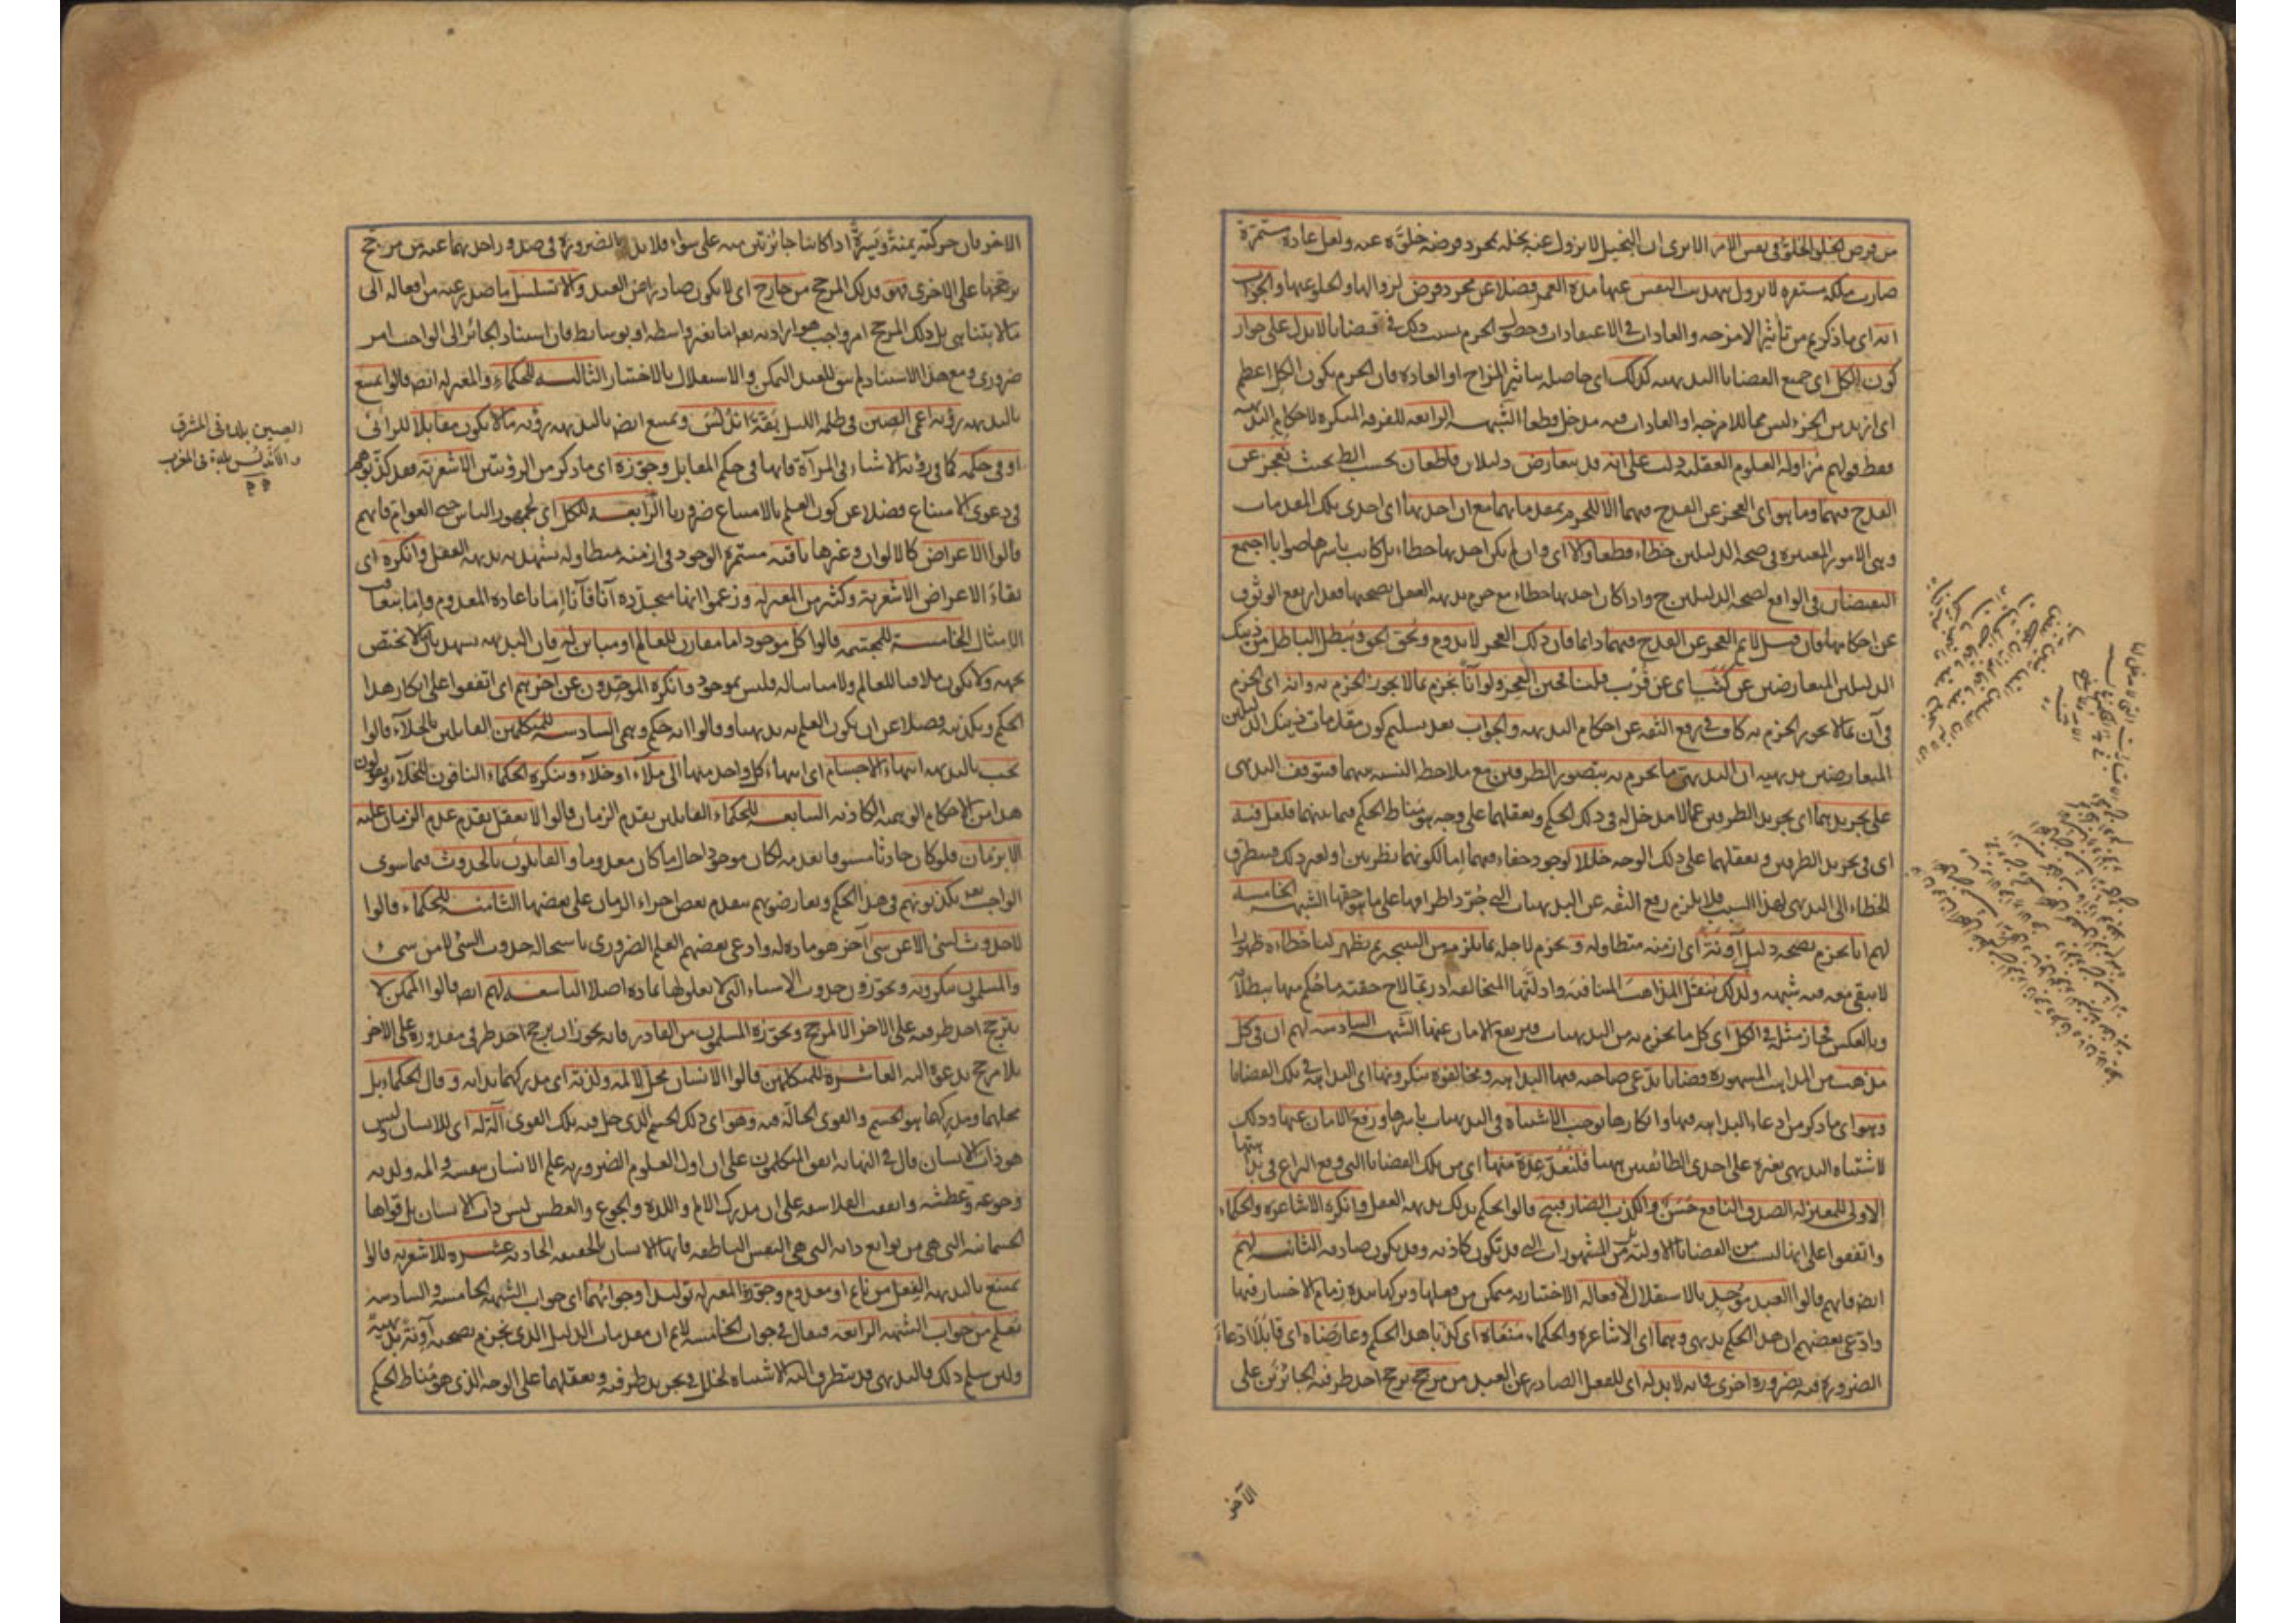 من فرض الخلو الخلو في نفس الامر الا يرى ان البخيل لا يزول عنه بخله بمجرد فرضه خلوه عنه ولعل عادة مستمرة
صارت ملكة مستقرة لا يزول بتهذيب النفس عنها مدة العمر فضلا عن مجرد فرض لزوالها والخلو عنها والجواب
انه اى ما ذكرتم من تأثير الامزجة والعادات في الاعتقادات وحصول الجزم بسبب ذلك في قضايا لا يدل على جواز
كون الكل اى جميع القضايا البديهية كذلك اى حاصلة بتأثير المزاج او العادة فان الجزم بكون الكل اعظم
اى ازيد من الجزء ليس مما للامزجة او العادات فيه مدخل قطعا الشبهة الرابعة للفرقة المنكرة لاحكام البديهة
فقط قولهم مزاولة العلوم العقلية دلت على انه قد يتعارض دليلان قاطعان بحسب الظ بحيث نعجز عن
القدح فيهما وما هو اى العجز عن القدح فيهما الا للجزم بمقدماتهما مع ان احديها اى احدى تلك المقدمات
وهى الامور المعتبرة في صحة الدليلين خطاء قطعا والا اى وان لم يكن احديها خطاء بل كانت باسرها صوابا اجتمع
النقيضان في الواقع لصحة الدليلين ح واذا كان احديها خطاء مع جزم بديهة العقل بصحتها فقد ارتفع الوثوق
عن احكامها فان قيل لا نم العجز عن القدح فيهما دائما فان ذلك العجز لا يدوم ويحق الحق ويبطل الباطل من ذينك
الدليلين المتعارضين عن كثب اى عن قرب قلنا فحين العجز ولو آنا نجزم بما لا يجوز الجزم به وانه اى الجزم
في آن بما لا يجوز الجزم به كاف في رفع الثقة عن احكام البديهة والجواب بعد تسليم كون مقدمات ذينك الدليلين
المتعارضين بديهية ان البديهى ما يجزم به بتصور الطرفين مع ملاحظة النسبة بينهما فيتوقف البديهى
على تجريدهما اى تجريد الطرفين عما لا مدخل له في ذلك الحكم وتعقلهما على وجه هو مناط الحكم فيما بينهما فلعل فيه
اى في تجريد الطرفين وتعقلهما على ذلك الوجه خللا لوجود خفاء فيهما اما لكونهما نظريين او لغير ذلك فيتطرق
الخطاء الى البديهى لهذا السبب فلا يلزم رفع الثقة عن البديهيات التى جرد اطرافها على ما هو حقها الشبهة الخامسة
لهم انا نجزم بصحة دليل آونة اى ازمنة متطاولة ونجزم لاجله بما يلزمه من النتيجة ثم يظهر لنا خطاءه ظهورا
لا يبقى معه فيه شبهة ولذلك ينقل المذاهب المتنافية وادلتها المتخالفة اذ ربما لاح حقية ما حكم فيها ببطلانه
وبالعكس فجاز مثله في الكل اى كل ما نجزم به من البديهيات فيرتفع الامان عنها الشبهة السادسة لهم ان في كل
مذهب من المذاهب المشهورة قضايا يدعى صاحبه فيها البداهة ومخالفوه ينكرونها اى البداهة في تلك القضايا
وهو اى ما ذكر من ادعاء البداهة فيها وانكارها يوجب الاشتباه في البديهيات باسرها ورفع الامان عنها وذلك
لاشتباه البديهى بغيره على احدى الطائفتين ههنا فلنعد عدة منها اى من تلك القضايا التى وقع النزاع في بداهتها
الاولى للمعتزلة الصدق النافع حسن والكذب الضار قبيح قالوا الحكم بذلك بديهة العقل وانكره الاشاعرة والحكماء
واتفقوا على انها ليست من القضايا الاولية بل من المشهورات التى قد تكون كاذبة وقد يكون صادقة الثانية لهم
ايضا فانهم قالوا العبد موجد بالاستقلال لافعاله الاختيارية متمكن من فعلها وتركها بيده زمام الاختيار فيها
وادعى بعضهم ان هذا الحكم بديهى وهما اى الاشاعرة والحكماء منعاه اى كذبا هذا الحكم وعارضاه اى قابلا ادعاء
الضرورة فيه بضرورة اخرى فانه لا بد له اى للفعل الصادر عن العبد من مرجح يرجح احد طرفيه الجائزين على
الآخر
الاخر فان حركته يمنة ويسرة اذا كانتا جائزتين منه على سواء فلا بد بالضرورة في صدور احديهما عنه من مرجح
يرجحها على الاخرى فهو ذلك المرجح من خارج اى لا يكون صادرا عن العبد والا تسلسل ما صدر عنه من افعاله الى
ما لا يتناهى بل ذلك المرجح امر واجب هو ارادته تعالى اما بغير واسطة او بوسائط فان استناد الجائز الى الواجب امر
ضرورى ومع هذا الاستناد لم يبق للعبد التمكن والاستقلال بالاختيار الثالثة للحكماء والمعتزلة ايضا قالوا يمتنع
بالبديهة رؤية اعمى الصين في ظلمة الليل بقة اندلس ويمتنع ايضا بالبديهة رؤية ما لا يكون مقابلا للرائى
او في حكمه كما في رؤية الاشياء في المرآة فانها في حكم المقابل وجوزه اى ما ذكر من الرؤيتين الاشعرية فقد كذبوهم
في دعوى الامتناع فضلا عن كون العلم بالامتناع ضروريا الرابعة للكل اى لجمهور الناس حتى العوام فانهم
قالوا الاعراض كالالوان وغيرها باقية مستمرة الوجود في ازمنة متطاولة يشهد به بديهة العقل وانكره اى
بقاء الاعراض الاشعرية وكثير من المعتزلة وزعموا انها متجددة آنا فآنا اما باعادة المعدوم واما بتعاقب
الامثال الخامسة للمجسمة قالوا كل موجود اما مقارن للعالم او مباين له فان البديهة تشهد بان ما لا يختص
بجهة ولا يكون ملاقيا للعالم ولا مباينا له فليس بموجود وانكره الموحدون عن آخرهم اى اتفقوا على انكار هذا
الحكم وتكذيبه فضلا عن ان يكون العلم به بديهيا وقالوا انه حكم وهمى السادسة للمتكلمين القائلين بالخلاء قالوا
يجب بالبديهة انتهاء الاجسام اى انتهاء كل واحد منها الى ملاء او خلاء وينكره الحكماء النافون للخلاء ويقولون
هذا من الاحكام الوهمية الكاذبة السابعة للحكماء القائلين بقدم الزمان قالوا لا يعقل تقدم عدم الزمان عليه
الا بزمان فلو كان حادثا مسبوقا بعدمه لكان موجودا حال ما كان معدوما والقائلون بالحدوث فيما سوى
الواجب تعالى يكذبونهم في هذا الحكم ويعارضونهم بتقدم بعض اجزاء الزمان على بعضها الثامنة للحكماء قالوا
لا حدوث لشئ الا عن شئ آخر هو مادة له وادعى بعضهم العلم الضرورى باستحالة حدوث الشئ لا من شئ
والمسلمون ينكرونه ويجوزون حدوث الاشياء التى لا تعلق لها بمادة اصلا التاسعة لهم ايضا قالوا الممكن لا
يترجح احد طرفيه على الاخر الا لمرجح ويجوزه المسلمون من القادر فانه يجوز ان يرجح احد طرفى مقدوره على الاخر
بلا مرجح يدعوه اليه العاشرة للمتكلمين قالوا الانسان محل لالمه ولذته اى مدركهما بذاته وقال الحكماء بل
محلهما ومدركهما هو الجسم والقوى الحالة فيه وهو اى ذلك الجسم الذى حل فيه تلك القوى آلة له اى للانسان وليس
هو ذات الانسان قال في النهاية اتفق المتكلمون على ان اول العلوم الضرورية علم الانسان بنفسه والمه ولذته
وجوعه وعطشه واتفقت الفلاسفة على ان مدرك الالم واللذة والجوع والعطش ليس ذات الانسان بل قواها
الجسمانية التى هى من توابع ذاته التى هى النفس الناطقة فانها الانسان بالحقيقة الحادية عشرة للاشعرية قالوا
يمتنع بالبديهة الفعل من نائم او معدوم وجوزه المعتزلة توليدا وجوابهما اى جواب الشبهة الخامسة والسادسة
تعلم من جواب الشبهة الرابعة فيقال في جواب الخامسة لا نم ان مقدمات الدليل الذى نجزم بصحته آونة بديهية
ولئن سلم ذلك فالبديهى قد يتطرق اليه الاشتباه لخلل في تجريد طرفيه وتعقلهما على الوجه الذى هو مناط الحكم
الصين بلدة في المشرق
والاندلس بلدة في المغرب